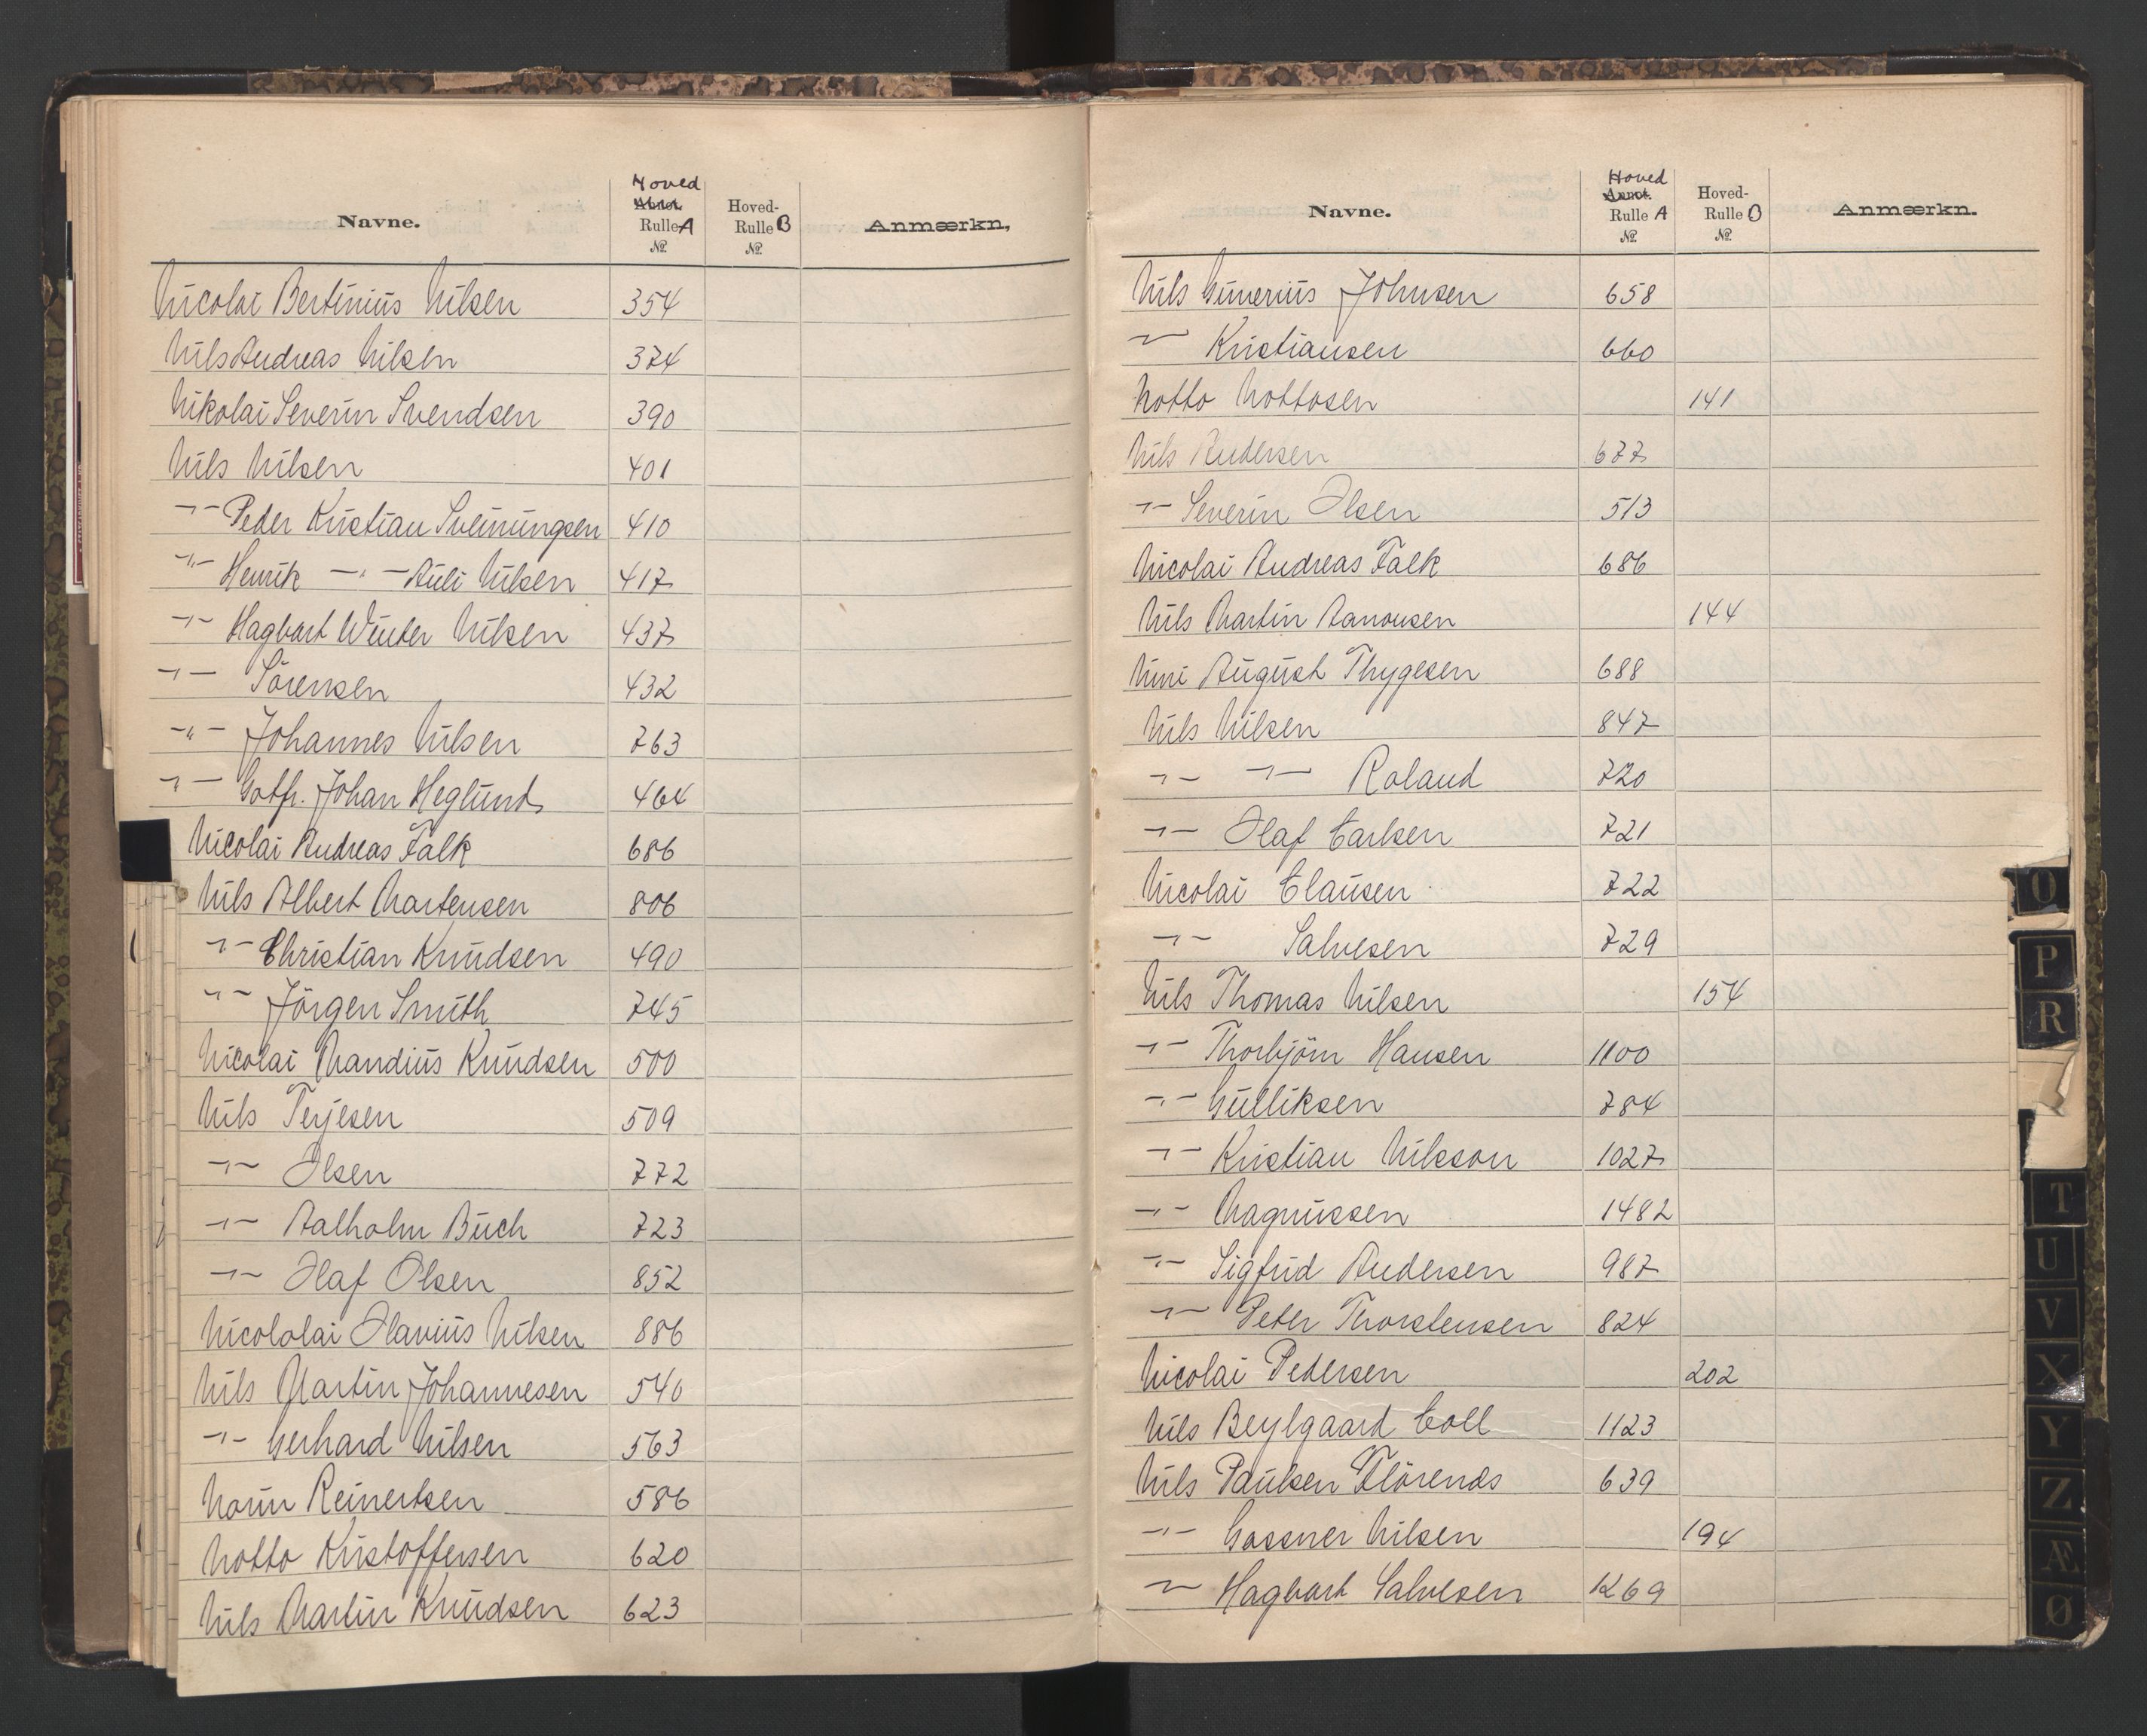 Navne.
Hoved
Annot.
Rulle A
№
Hoved-
Rulle B
№
Anmærkn,
Nicolai Bertinius Nilsen 354
Nils Andreas Nilsen 374
Nikolai Severin Svendsen 390
Nils Nilsen 401
-"- Peder Kristian Sveinungsen 410
-"- Henrik -"- Auli Nilsen 417
-"- Hagbart Winter Nilsen 437
-"- Sörensen 432
-"- Johannes Nilsen 763
-"- Gotfr. Johan Heglund 464
Nicolai Andreas Falk 686
Nils Albert Martensen 806
-"- Christian Knudsen 490
-"- Jörgen Smith 745
Nicolai Mandius Knudsen 500
Nils Terjesen 509
-"- Olsen 772
-"- Aalholm Buch 723
-"- Olaf Olsen 852
Nicololai Olavius Nilsen 886
Nils Martin Johannesen 540
-"- Gerhard Nilsen 563
Norin Reinertsen 586
Notto Kristoffersen 620
Nils Martin Knudsen 623
Navne.
Hoved
Annot.
Rulle A
№
Hoved-
Rulle B
№
Anmærkn.
Nils Gunerius Johnsen 658
-"- Kristiansen 660
Notto Nottosen 141
Nils Andersen 677
-"- Severin Olsen 513
Nicolai Andreas Falk 686
Nils Martin Aanonsen 144
Nini August Thygesen 688
Nils Nilsen 847
-"- -"- Roland 720
-"- Olaf Carlsen 721
Nicolai Clausen 722
-"- Salvesen 729
Nils Thomas Nilsen 154
-"- Thorbjörn Hansen 1100
-"- Gulliksen 784
-"- Kristian Nilsson 1027
-"- Magnussen 1482
-"- Sigfrid Andersen 987
-"- Peter Thorstensen 824
Nicolai Pedersen 202
Nils Beylgaard Coll 1123
Nils Paulsen Flörends 639
-"- Gossner Nilsen 194
-"- Hagbart Salvesen 1269
O
P
R
T
U
V
X
Y
Z
Æ
Ø